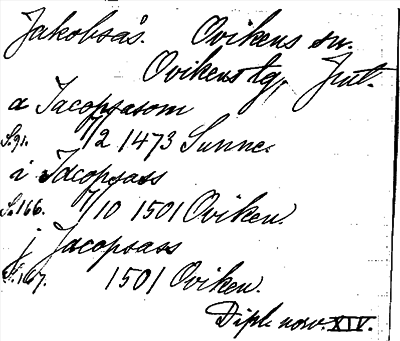 Jakobsås. Ovikens sn.
Ovikens tg, Jmt.
a Jacopsasom
S. 91. 1/2 1473 Sunne.
i Jacopsass
S. 166. 7/10 1501 Oviken.
j Jacopsass
S. 167. 1501 Oviken.
Dipl. norv. XIV.